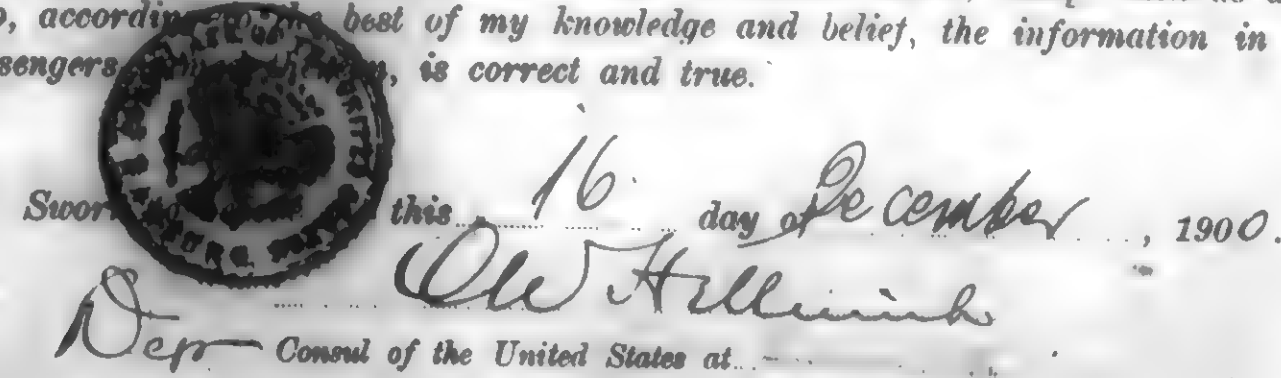 , according to the best of my knowledge and belief, the information in
sengers, is correct and true.
Sworn this 16 day of December, 1900.
O W Hellmrich
Dep Consul of the United States at